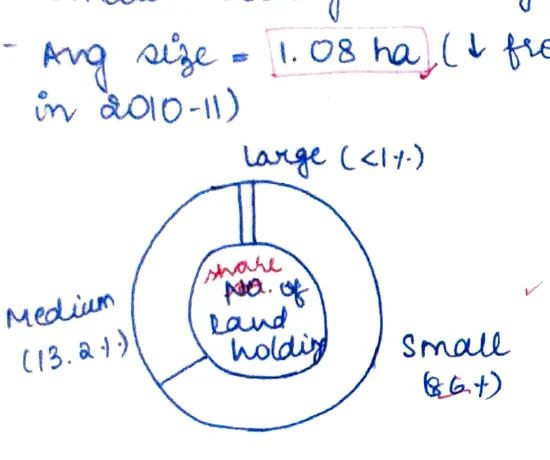 - Avg size = 1.08 ha (↓ fro
in 2010-11)
Large (<1%)
share
No. of
Land
holding
Medium
(13.2%)
Small
(86%)